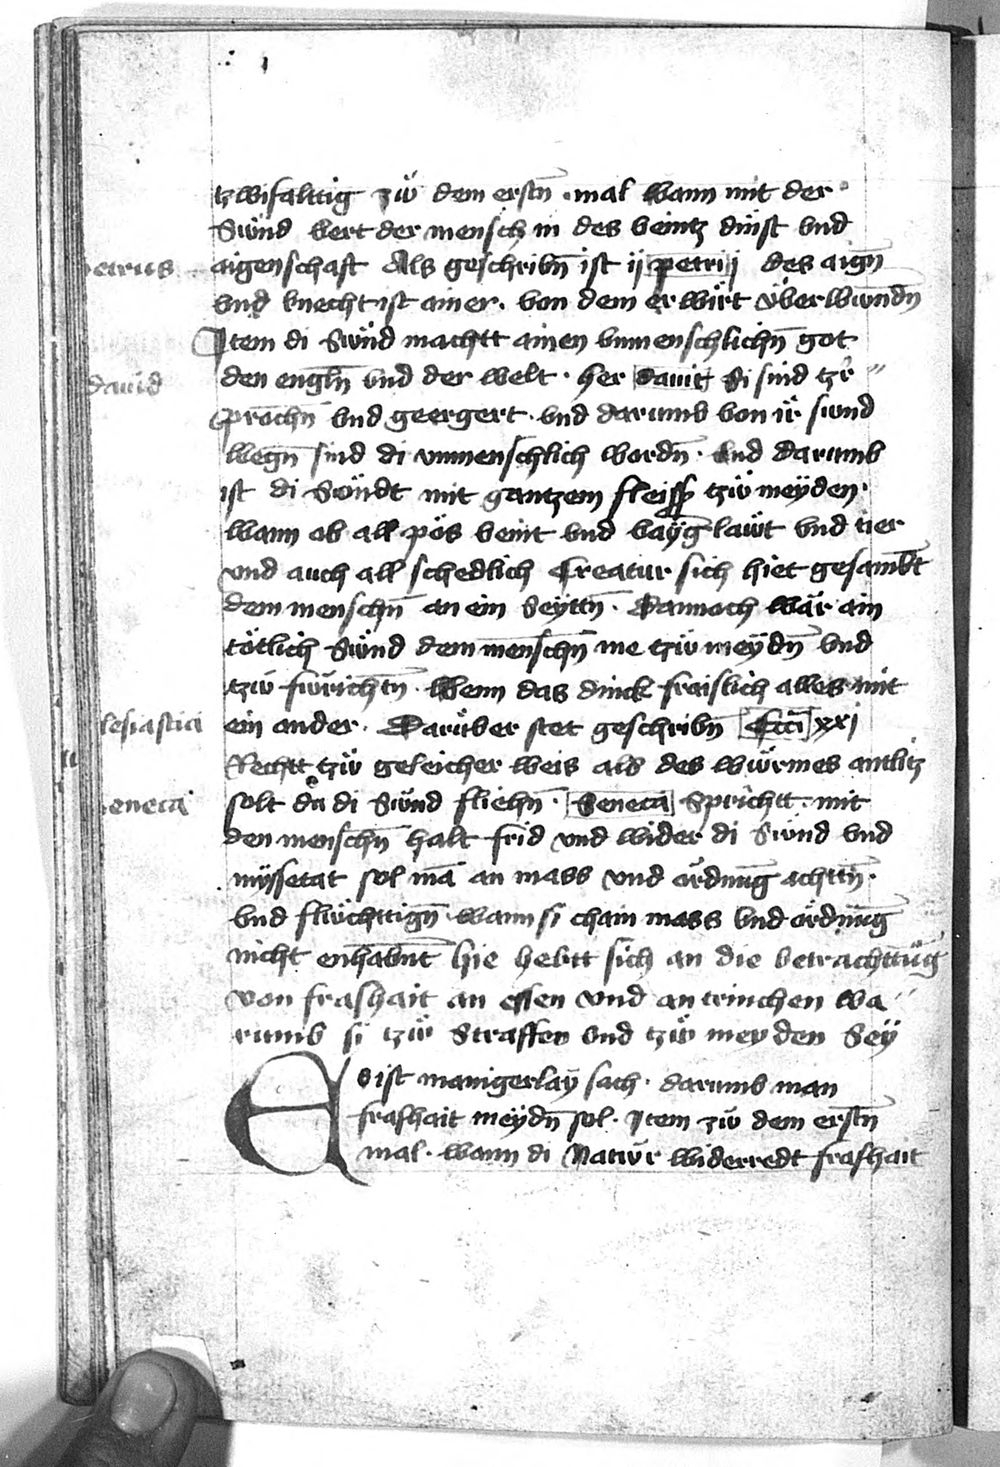 tzwifalttig zẅ dem erstn̄ mal wann mit der
Sẅnd wert der mensch in des veintz dinst vnd
petrus
aigenschaft Als geschribn̄ ist ij petri ij des aign̄
vnd knecht ist ainer von dem er wirt v̈berwundn̄
Item di Sẅnd machtt ainen vnmenschlichn̄ got
dauid
den engln̄ vnd der welt her dauit Si sind tzr̄
prochn̄ vnd geergert vnd darumb von ir̈ sund
wegn̄ sind di vnmenschlich wordn̄ vnd darumb
ist di Sẅndt mit gantzem fleiss tzẅ meÿden
wann ob all pös veint vnd vaÿg läwt vnd tier
vnd auch all schedlich Creatur sich hiet gesambt
dem menschn̄ an ein Seyttn̄ Dannoch wär ain
tötlich Sẅnd dem menschn̄ me tzẅ meÿdn̄ vnd
tzẅ fẅrichtn̄ Wenn das dinck fraislich alles mit
lesiastici
ein ander Darüber stet geschribn̄ Ecci xxj
Rechtt tzẅ geleicher weis als des würmes antlitz
eneca
solt dů di Sünd fliehn̄ Seneca Sprichtt mit
den menschn̄ halt frid vnd wider di Sünd vnd
missetat sol mā an mass vnd ordnūg achttn̄
vnd flẅchttign̄ wann si chain mass vnd ördnūg
nicht enhabnt hie hebtt sich an die betrachttūg
von frashait an essen vnd an trinchen wa
rumb si tzẅ Straffen vnd tzẅ meyden Seÿ
Es ist manigerlaÿ sach darumb man
frashait meÿdn̄ sol Item zẅ dem erstn̄
mal wann di Natẅr widerredt frashait